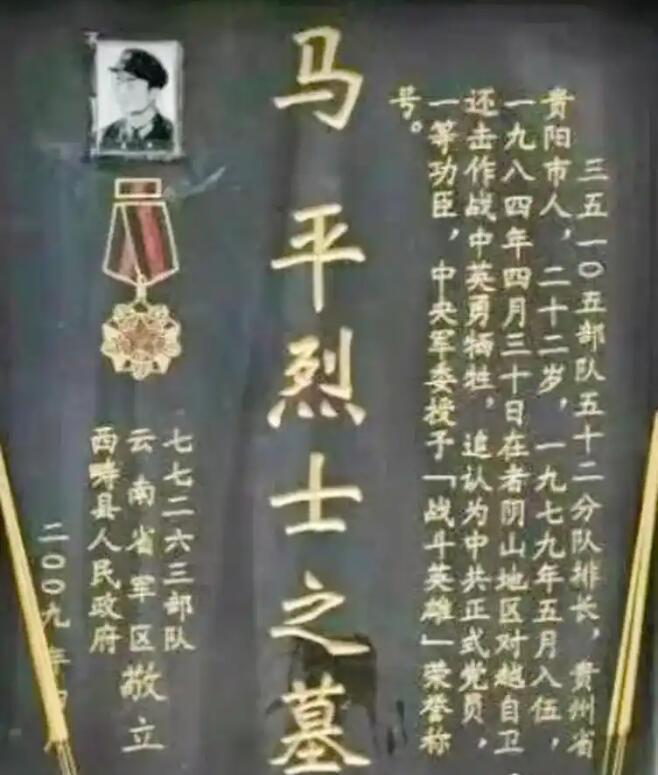 三五一〇五部队五十二分队排长，贵州省
贵阳市人，二十二岁，一九七九年五月入伍，
一九八四年四月三十日在者阴山地区对越自卫
还击作战中英勇牺牲，追认为中共正式党员，
一等功臣，中央军委授予「战斗英雄」荣誉称
号。
马平烈士之墓
七七二六三部队
云南省军区 敬立
西畴县人民政府
二〇〇九年